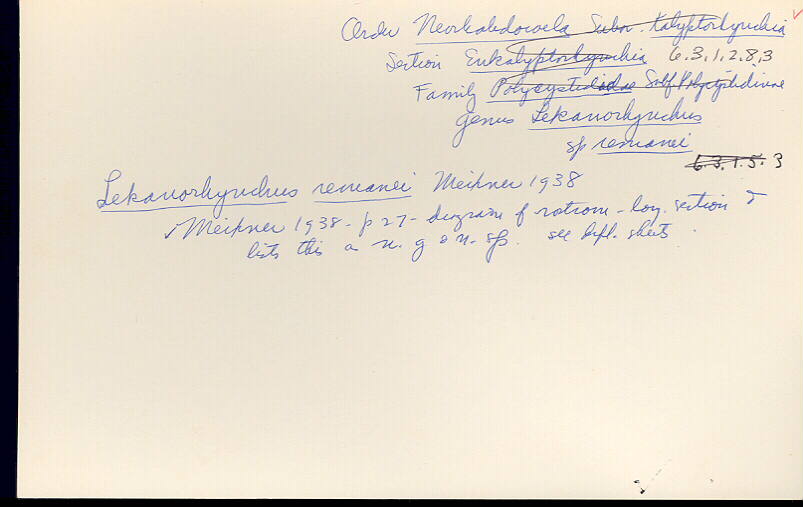 Order Neorhabdocoela Subor. Kalyptorhynchia
Section Eukalyptorhynchia 6.3.1.2.8.3
Family Polycystididae Subf Polycystidinae
genus Lekanorhynchus
sp remanei
6.3.1.5.3
Lekanorhynchus remanei Meixner 1938
✓Meixner 1938 - p 27 - diagram of rostrum - long. section &
lists this as n. g & n. sp. see sheets.